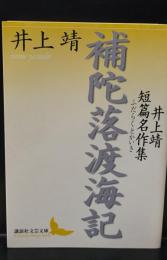 井上 靖
補陀落渡海記
井上靖
短篇名作集
ふだらくとかいき
講談社文芸文庫